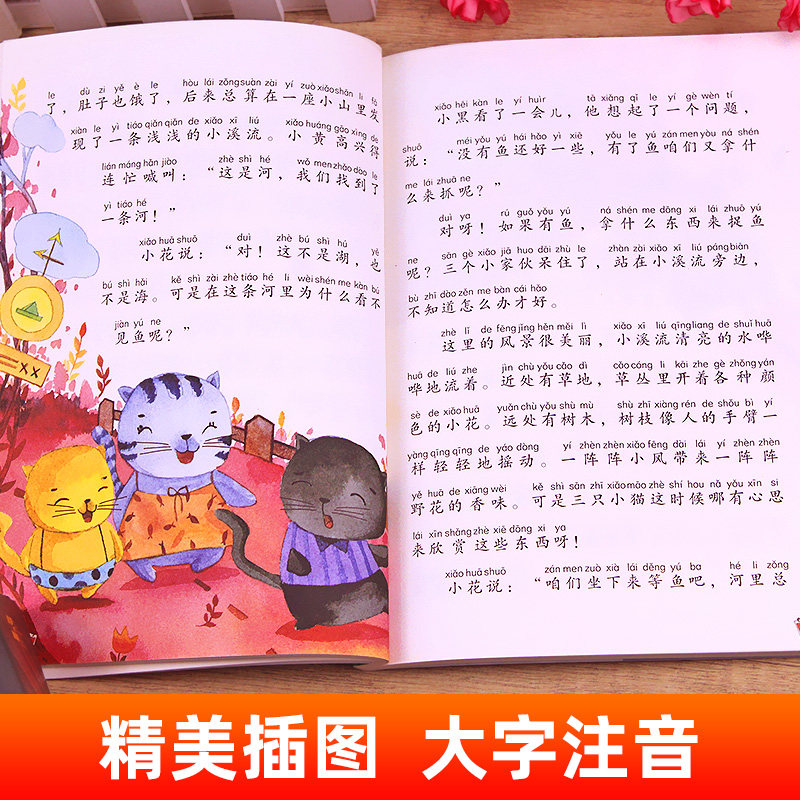 le dù zi yě è le hòu lái zǒng suàn zài yí zuò xiǎo shān lǐ fā
了，肚子也饿了，后来总算在一座小山里发
xiàn le yì tiáo qiǎn qiǎn de xiǎo xī liú xiǎo huáng gāo xìng de
现了一条浅浅的小溪流。小黄高兴得
lián máng hǎn jiào zhè shì hé wǒ men zhǎo dào le
连忙喊叫：“这是河，我们找到了
yì tiáo hé
一条河！”
xiǎo huā shuō duì zhè bú shì hú yě
小花说：“对！这不是湖，也
bú shì hǎi kě shì zài zhè tiáo hé lǐ wèi shén me kàn bú
不是海。可是在这条河里为什么看不
jiàn yú ne
见鱼呢？”
XX
xiǎo hēi kàn le yí huìr tā xiǎng qǐ le yí gè wèn tí
小黑看了一会儿，他想起了一个问题，
shuō méi yǒu yú hái hǎo yì xiē yǒu le yú zán men yòu ná shén
说：“没有鱼还好一些，有了鱼咱们又拿什
me lái zhuā ne
么来抓呢？”
duì ya rú guǒ yǒu yú ná shén me dōng xi lái zhuō yú
对呀！如果有鱼，拿什么东西来捉鱼
ne sān gè xiǎo jiā huo dāi zhù le zhàn zài xiǎo xī liú páng biān
呢？三个小家伙呆住了，站在小溪流旁边，
bù zhī dào zěn me bàn cái hǎo
不知道怎么办才好。
zhè lǐ de fēng jǐng hěn měi lì xiǎo xī liú qīng liàng de shuǐ huā
这里的风景很美丽，小溪流清亮的水哗
huā de liú zhe jìn chù yǒu cǎo dì cǎo cóng lǐ kāi zhe gè zhǒng yán
哗地流着。近处有草地，草丛里开着各种颜
sè de xiǎo huā yuǎn chù yǒu shù mù shù zhī xiàng rén de shǒu bì yí
色的小花。远处有树木，树枝像人的手臂一
yàng qīng qīng de yáo dòng yí zhèn zhèn xiǎo fēng dài lái yí zhèn zhèn
样轻轻地摇动。一阵阵小风带来一阵阵
yě huā de xiāng wèi kě shì sān zhī xiǎo māo zhè shí hou nǎ yǒu xīn si
野花的香味。可是三只小猫这时候哪有心思
lái xīn shǎng zhè xiē dōng xi ya
来欣赏这些东西呀！
xiǎo huā shuō zán men zuò xià lái děng yú ba hé lǐ zǒng
小花说：“咱们坐下来等鱼吧，河里总
精美插图 大字注音